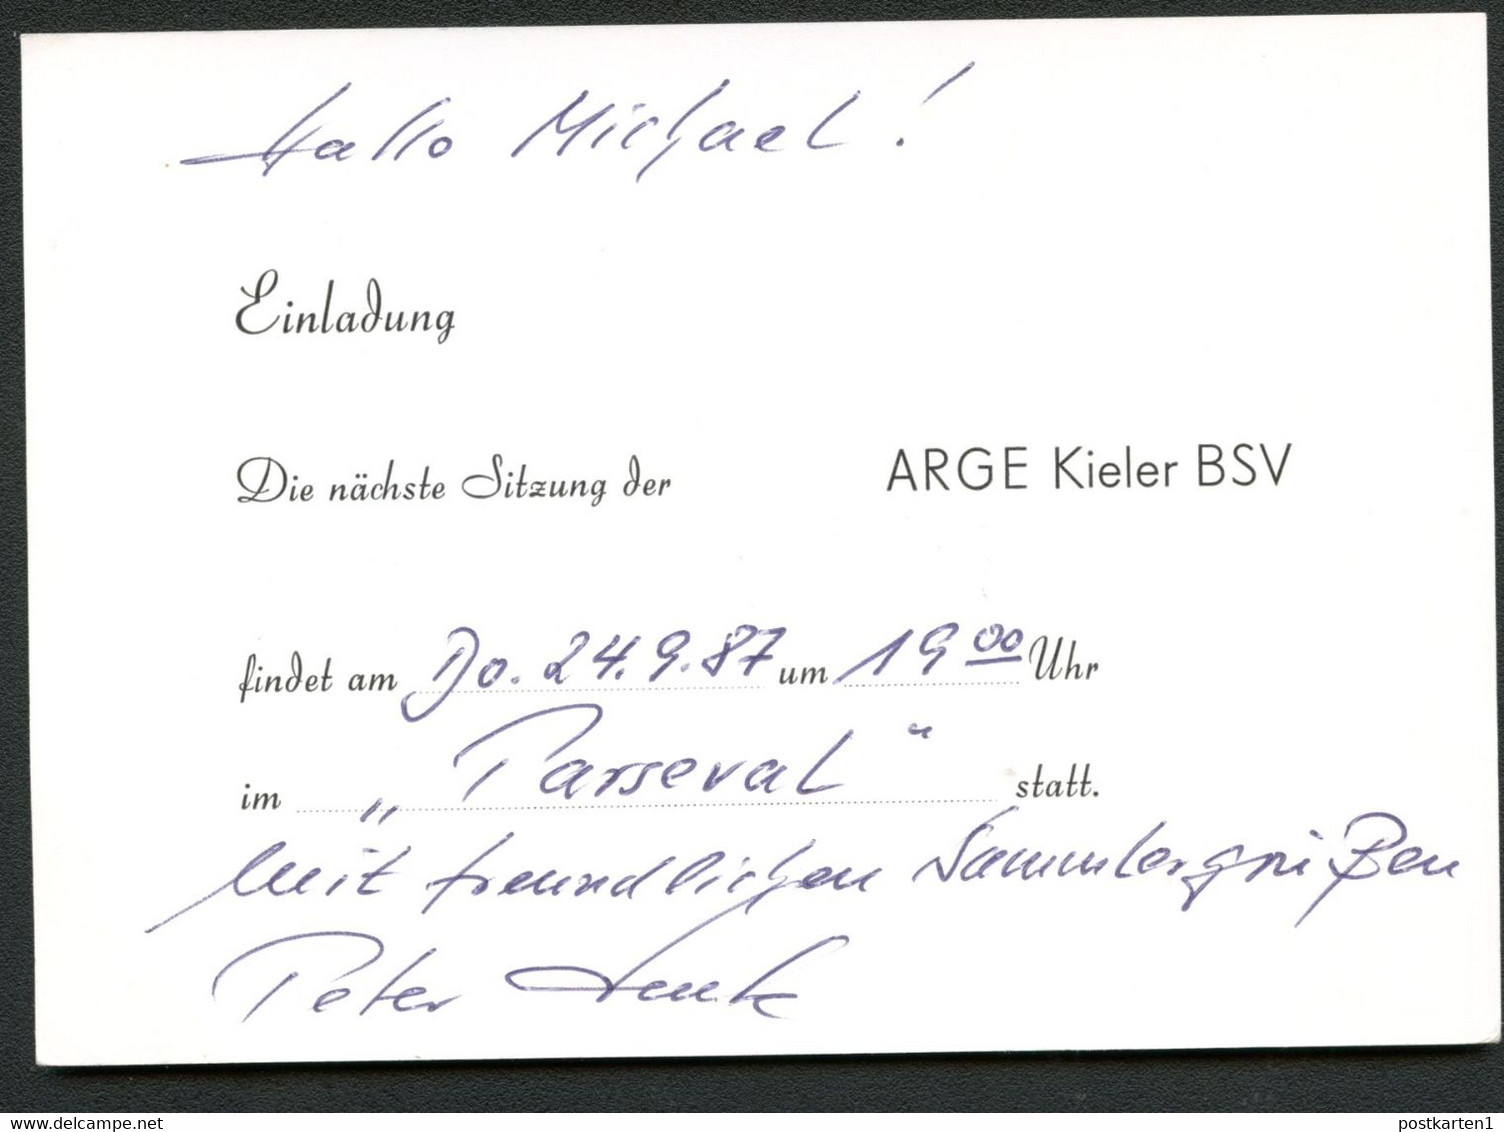 Hallo Michael!
Einladung
Die nächste Sitzung der ARGE Kieler BSV
findet am Do. 24.9.87 um 19 00 Uhr
im „Parseval“ statt.
Mit freundlichen Sammlergrüßen
Peter
www.delcampe.net
postkarten1